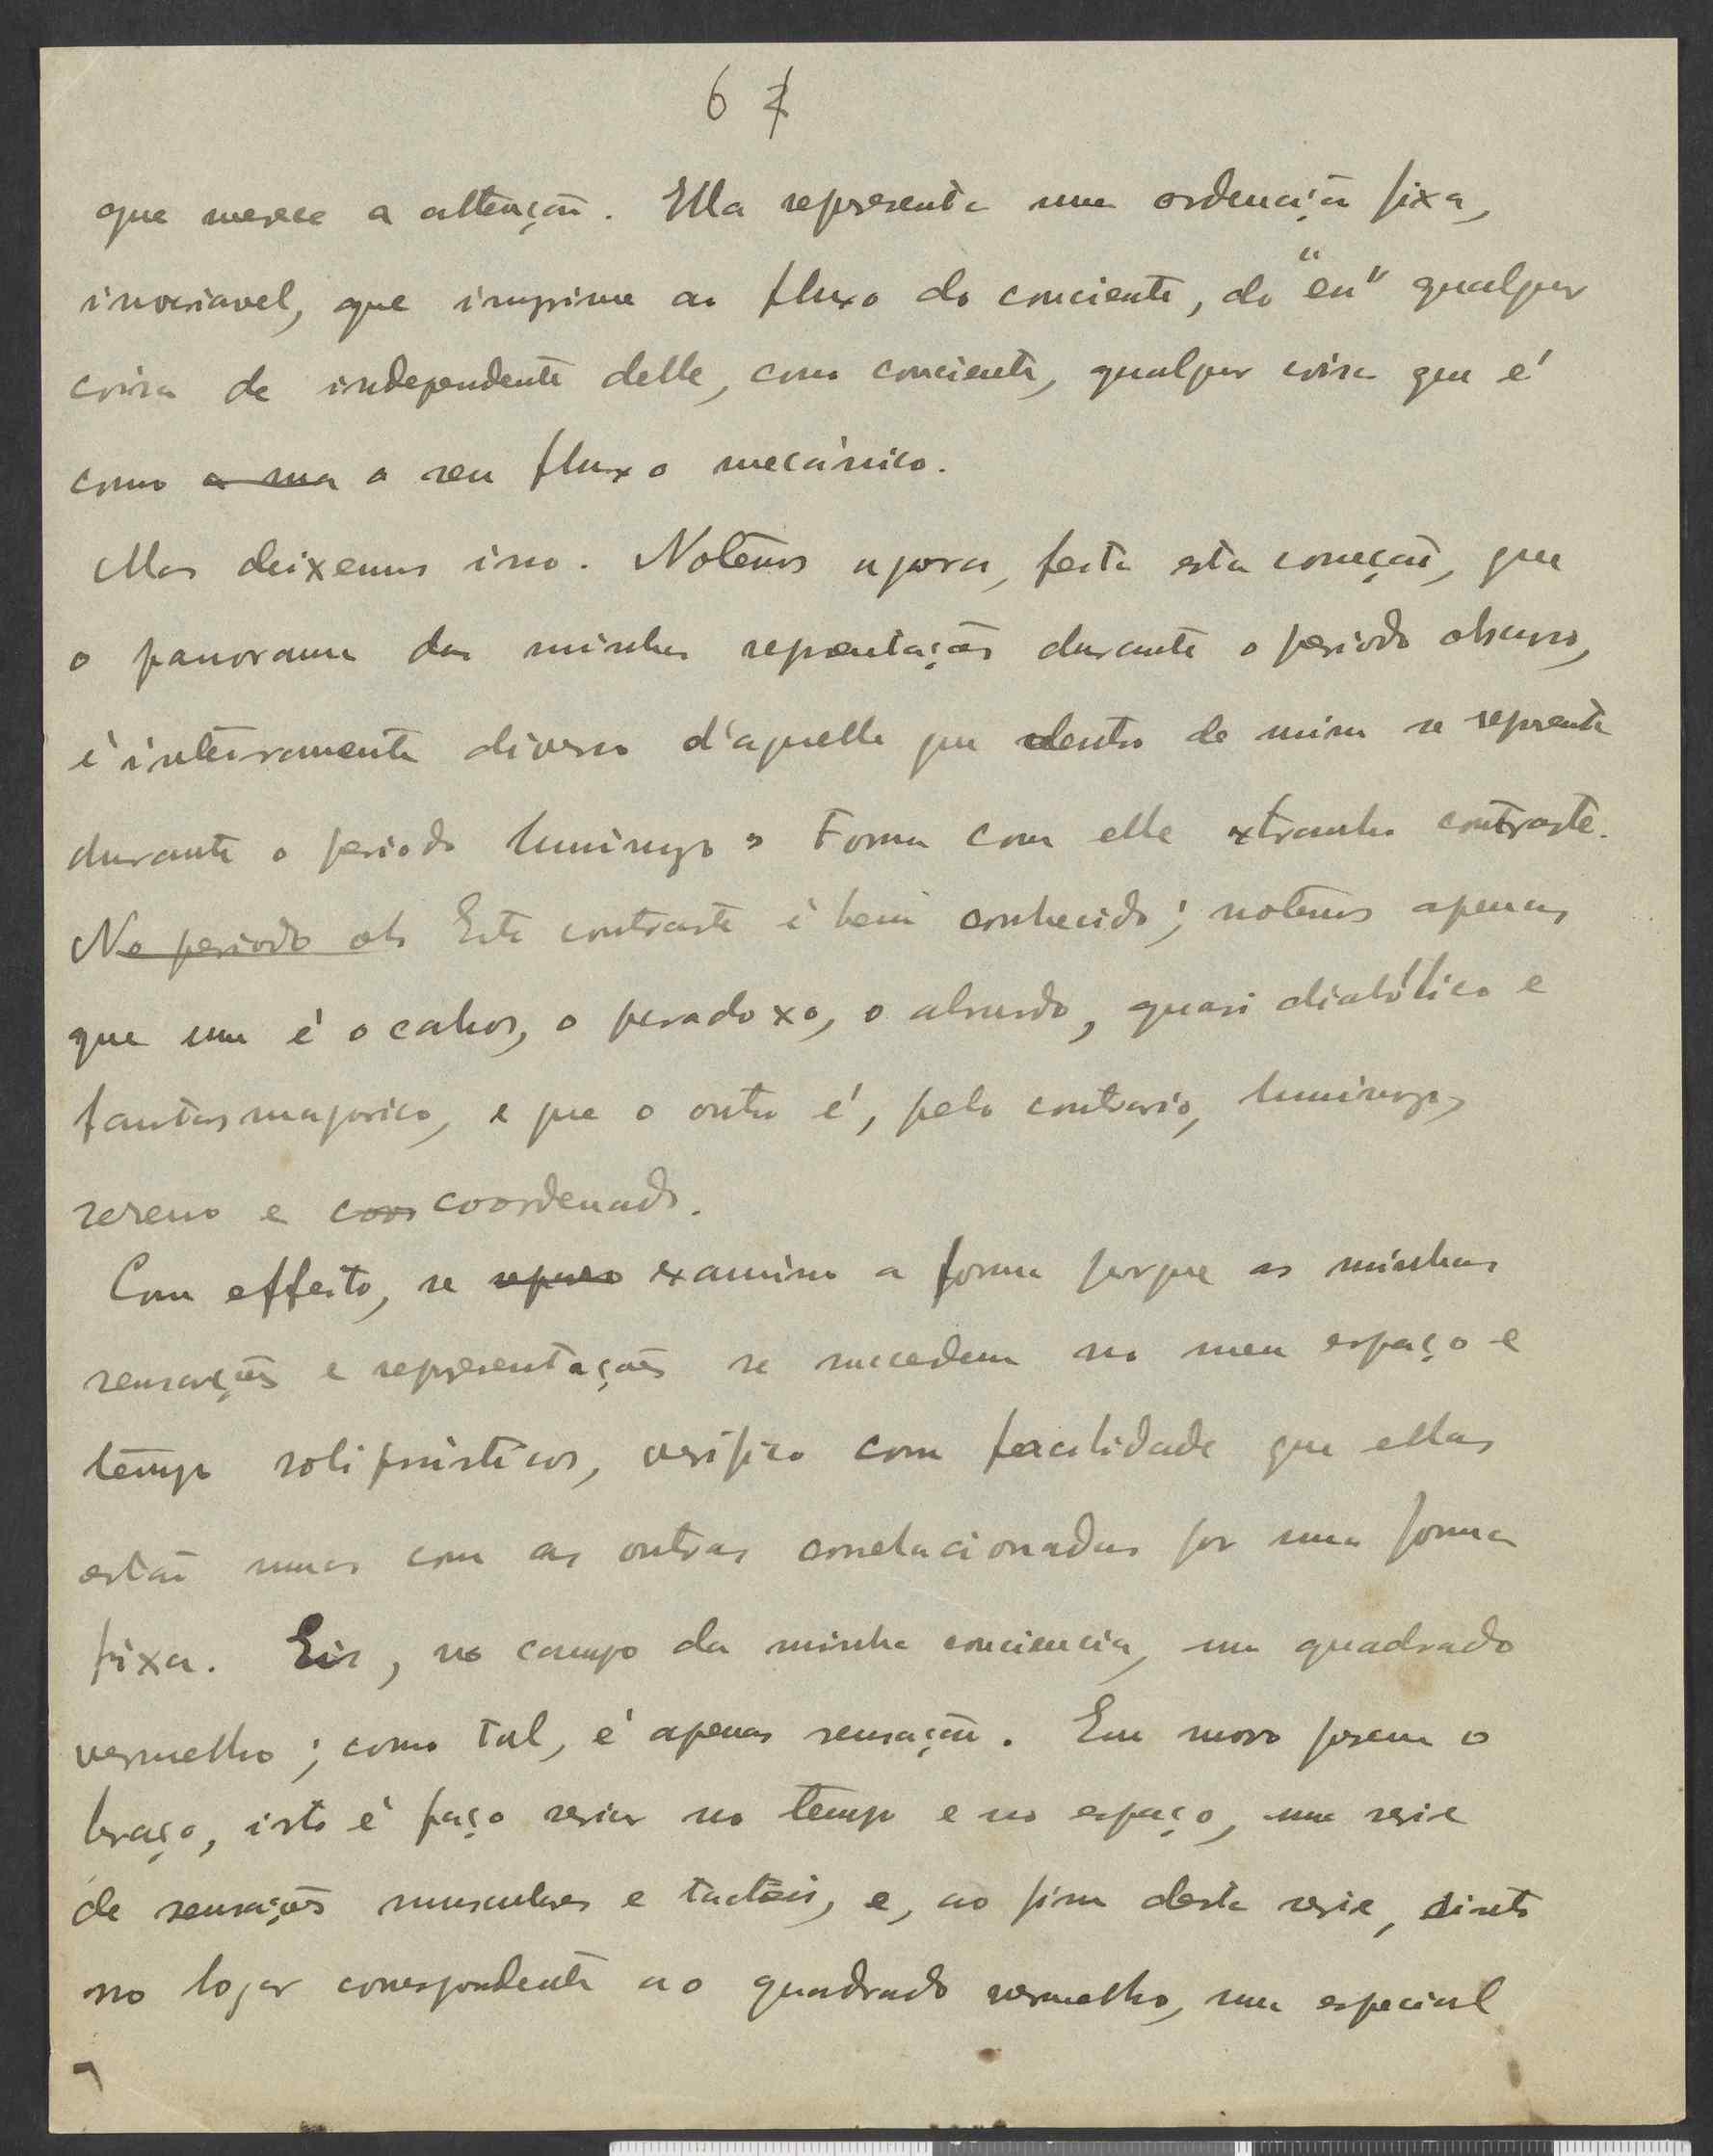 6 7
que merece a attenção. Ella representa uma ordenação fixa,
invariavel, que imprime ao fluxo do conciente, do "eu" qualquer
coisa de independente delle, como conciente, qualquer coisa que é
como a sua o seu fluxo mecánico.
Mas deixemos isso. Notemos agora, feita esta correcção, que
o panorama das minhas representações durante o periodo obscuro,
é inteiramente diverso d'aquelle que dentro de mim se representa
durante o periodo luminoso. Forma com elle extranho contraste.
No periodo obs Este contraste é bem conhecido; notemos apenas
que um é o cahos, o paradoxo, o absurdo, quasi diabólico e
fantasmagorico, e que o outro é, pelo contrario, luminoso,
sereno e coor coordenado.
Com effeito, se reparo examino a forma porque as minhas
sensações e representações se succedem no meu espaço e
tempo solipsisticos, verifico com facilidade que ellas
estão umas com as outras correlacionadas por uma forma
fixa. Eis, no campo da minha conciencia, um quadrado
vermelho; como tal, é apenas sensação. Eu movo porem o
braço, isto é faço seriar no tempo e no espaço, uma serie
de sensações musculares e tacteis, e, ao fim desta serie, sinto
no logar correspondente ao quadrado vermelho, uma especial